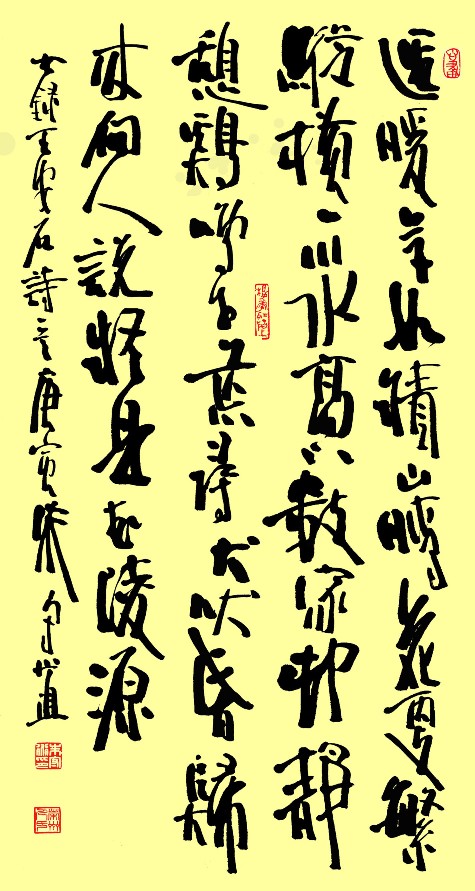 逕暖草如積山晴花更繁
縱橫一川水高下數家邨靜
憩鷄鳴午荒尋犬吠昏歸
來向人説疑是武陵源
錄王安石詩庚寅